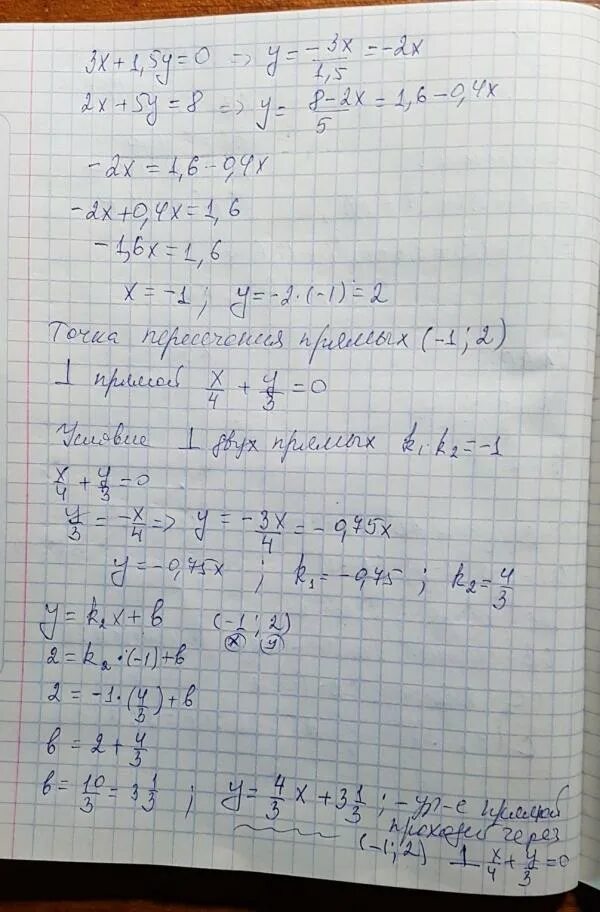 3x+1,5y=0 => y= -3x/1,5 = -2x
2x+5y=8 => y= 8-2x/5 = 1,6-0,4x
-2x = 1,6-0,4x
-2x+0,4x=1,6
-1,6x=1,6
x=-1; y=-2·(-1)=2
Точка пересечения прямых (-1;2)
⊥ прямой x/4 + y/3 = 0
Условие ⊥ двух прямых k₁·k₂=-1
x/4 + y/3 = 0
y/3 = -x/4 => y= -3x/4 = -0,75x
y=-0,75x ; k₁=-0,75 ; k₂= 4/3
y=k₂x+в (-1;2)
(x) (y)
2=k₂·(-1)+в
2=-1·(4/3)+в
в=2+4/3
в=10/3=3 1/3 ; y=4/3 x+3 1/3 ; -ур-е прямой
проходей через
(-1;2) ⊥ x/4 + y/3 = 0